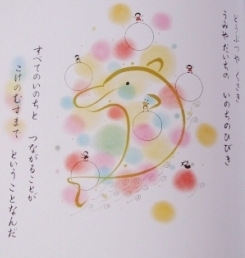 うみやだいちの いのちのひびき
すべてのいのちと つながることが
こけのむすまで ということなんだ